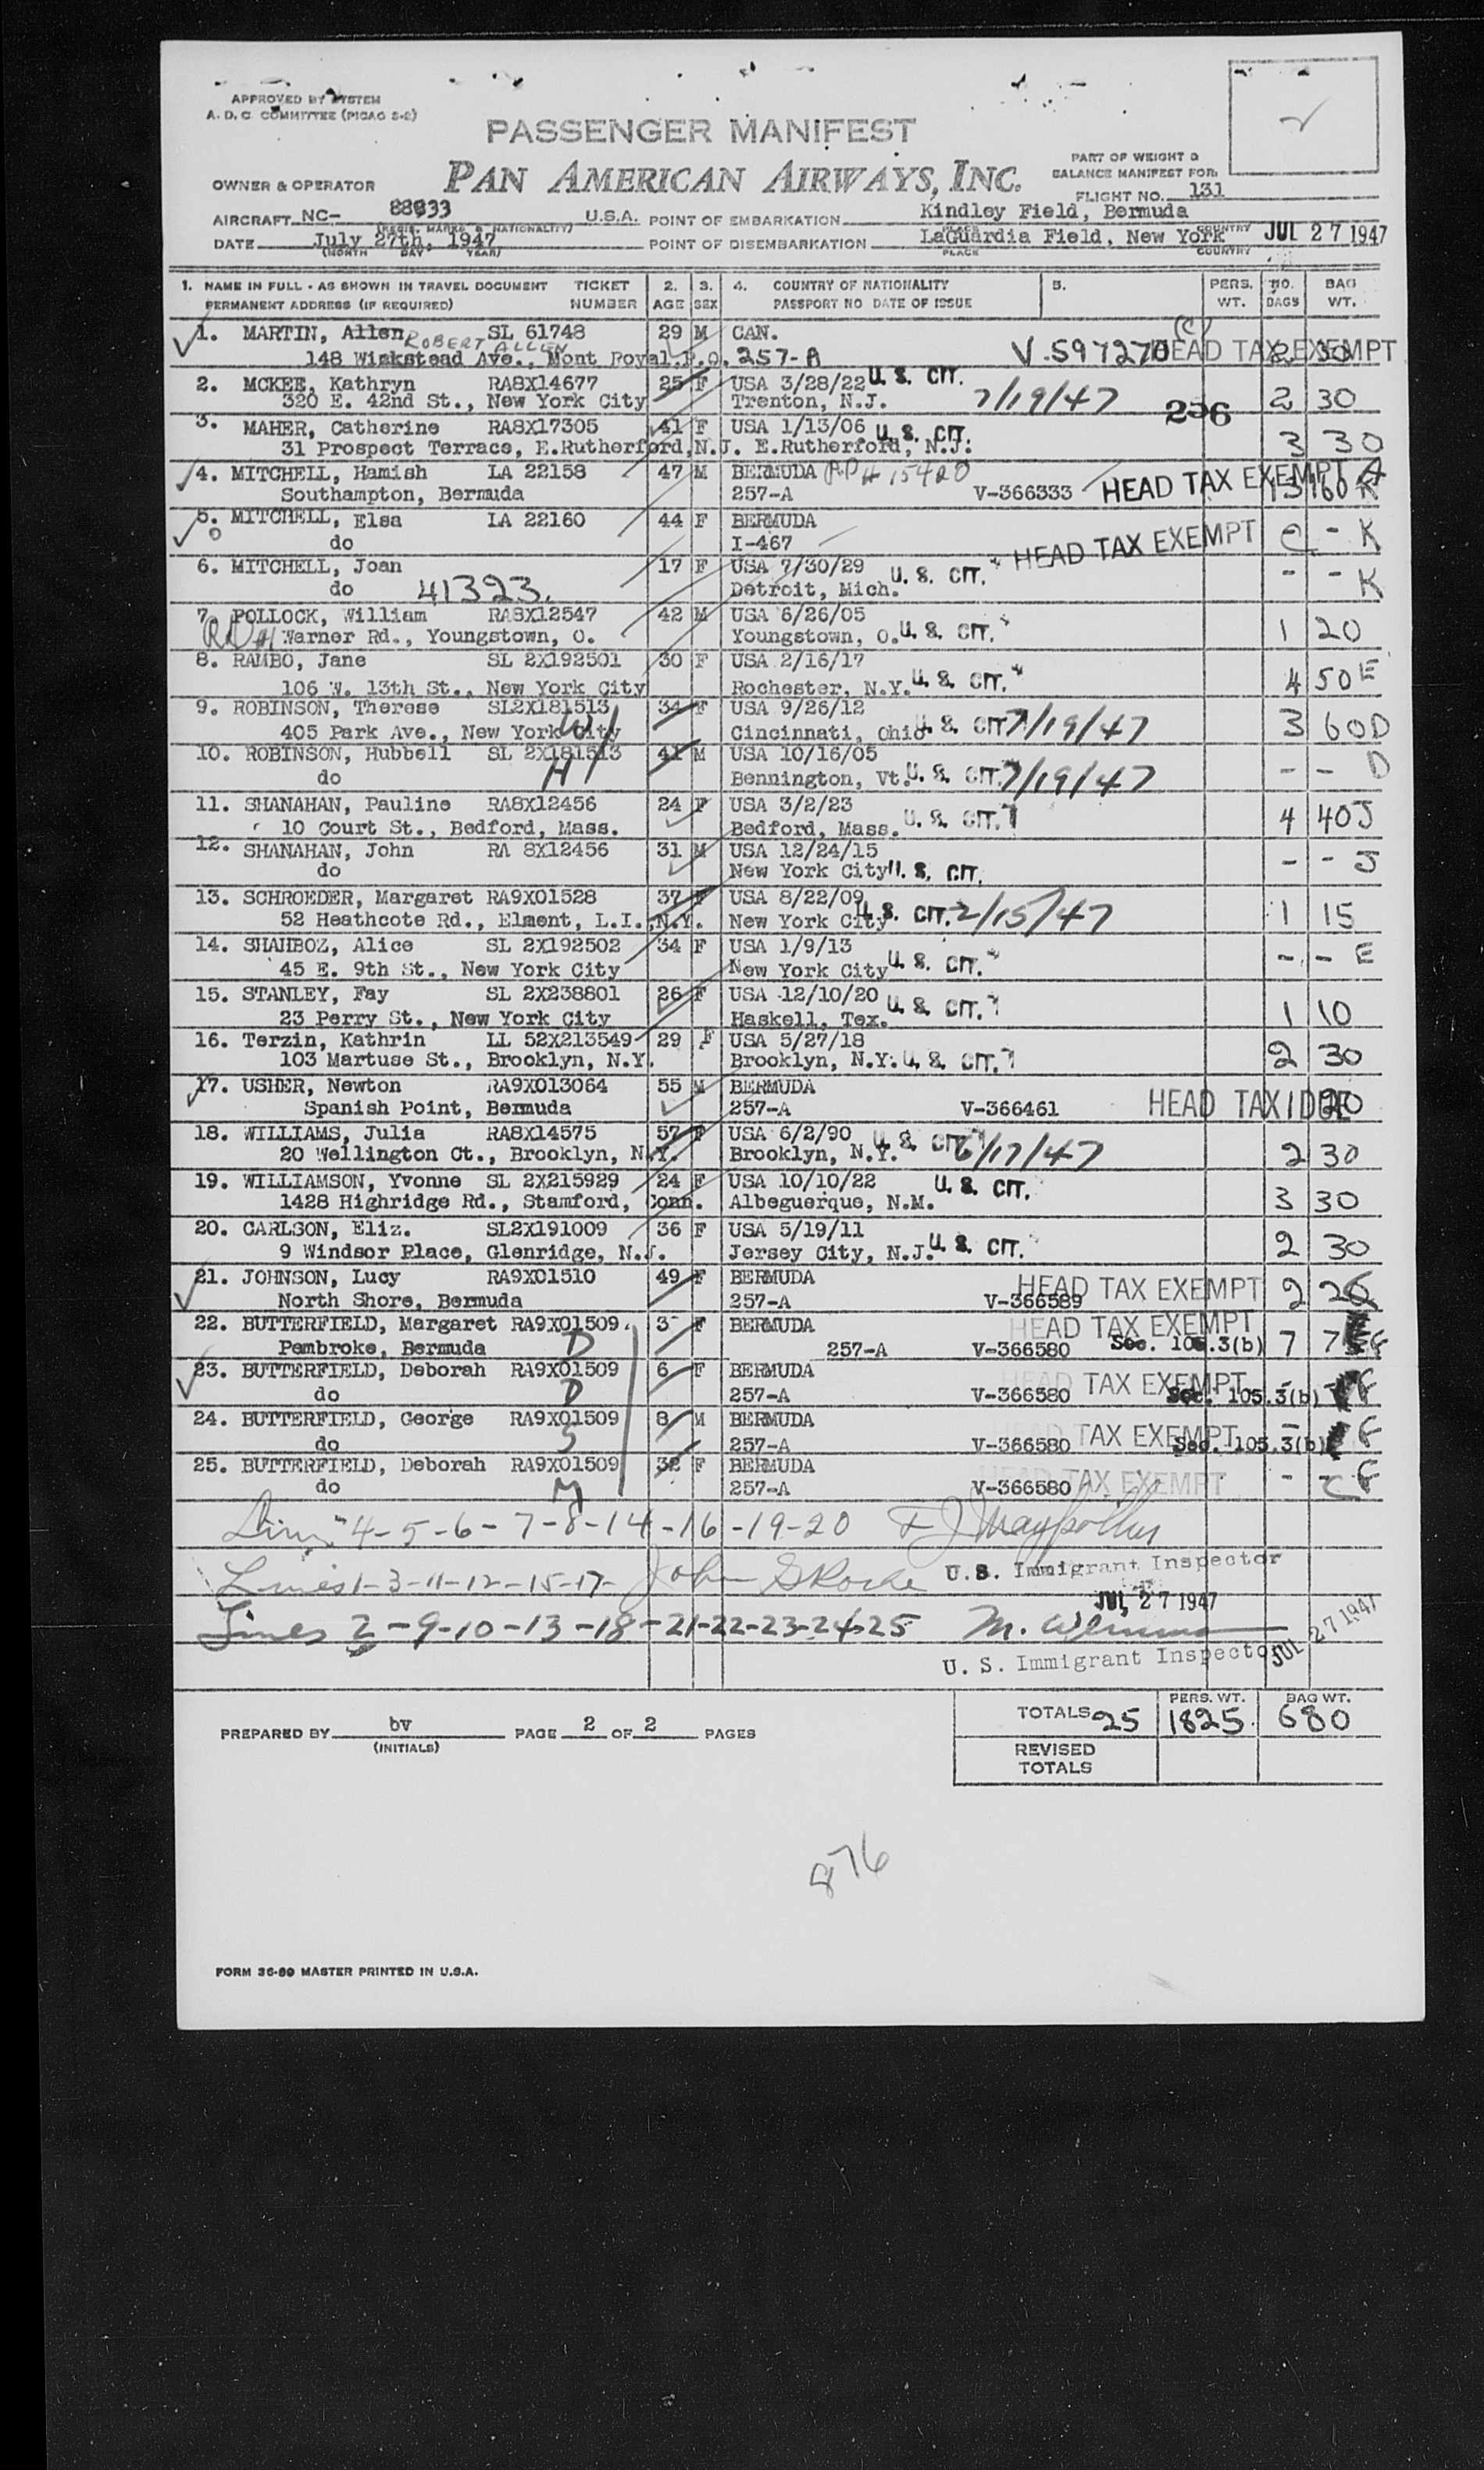 APPROVED BY SYSTEM
A. D. C. COMMITTEE (PICAO S-2)
PASSENGER MANIFEST
PAN AMERICAN AIRWAYS, INC.
PART OF WEIGHT &
BALANCE MANIFEST FOR:
OWNER & OPERATOR
FLIGHT NO. 131
AIRCRAFT NC- 88933 U.S.A. POINT OF EMBARKATION Kindley Field, Bermuda
(REGIS. MARKS & NATIONALITY) PLACE COUNTRY
DATE July 27th, 1947 POINT OF DISEMBARKATION LaGuardia Field, New York JUL 27 1947
(MONTH DAY YEAR) PLACE COUNTRY
1. NAME IN FULL - AS SHOWN IN TRAVEL DOCUMENT TICKET 2. 3. 4. COUNTRY OF NATIONALITY 5. PERS. NO. BAG
PERMANENT ADDRESS (IF REQUIRED) NUMBER AGE SEX PASSPORT NO DATE OF ISSUE WT. BAGS WT.
1. MARTIN, Allen ROBERT ALLEN SL 61748 29 M CAN. (C)
148 Winkstead Ave., Mont Royal P.Q. 257-A V-597270 HEAD TAX EXEMPT 2 30
2. MCKEE, Kathryn RA8X14677 25 F USA 3/28/22 U. S. CIT.
320 E. 42nd St., New York City Trenton, N.J. 7/19/47 256 2 30
3. MAHER, Catherine RA8X17305 41 F USA 1/13/06 U. S. CIT.
31 Prospect Terrace, E.Rutherford, N.J. E.Rutherford, N.J. 3 30
4. MITCHELL, Hamish LA 22158 47 M BERMUDA RP# 15420
Southampton, Bermuda 257-A V-366333 HEAD TAX EXEMPT 160 K
5. MITCHELL, Elsa LA 22160 44 F BERMUDA
do I-467 HEAD TAX EXEMPT - K
6. MITCHELL, Joan 17 F USA 7/30/29 U. S. CIT.
do 41323. Detroit, Mich. - - K
7. POLLOCK, William RA8X12547 42 M USA 6/26/05
RD #1 Warner Rd., Youngstown, O. Youngstown, O. U. S. CIT. 1 20
8. RAMBO, Jane SL 2X192501 30 F USA 2/16/17
106 W. 13th St., New York City Rochester, N.Y. U. S. CIT. 4 50 E
9. ROBINSON, Therese SL2X181513 34 F USA 9/26/12
405 Park Ave., New York City W Cincinnati, Ohio U. S. CIT 7/19/47 3 60 D
10. ROBINSON, Hubbell SL 2X181513 41 M USA 10/16/05
do H Bennington, Vt. U. S. CIT. 7/19/47 - - D
11. SHANAHAN, Pauline RA8X12456 24 F USA 3/2/23
10 Court St., Bedford, Mass. Bedford, Mass. U. S. CIT. 4 40 J
12. SHANAHAN, John RA 8X12456 31 M USA 12/24/15
do New York City U. S. CIT. - - J
13. SCHROEDER, Margaret RA9X01528 37 F USA 8/22/09
52 Heathcote Rd., Elment, L.I., N.Y. New York City U. S. CIT. 2/15/47 1 15
14. SHAHBOZ, Alice SL 2X192502 34 F USA 1/9/13
45 E. 9th St., New York City New York City U. S. CIT. - - E
15. STANLEY, Fay SL 2X238801 26 F USA 12/10/20
23 Perry St., New York City Haskell, Tex. U. S. CIT. 1 10
16. Terzin, Kathrin LL 52X213549 29 F USA 5/27/18
103 Martuse St., Brooklyn, N.Y. Brooklyn, N.Y. U. S. CIT. 2 30
17. USHER, Newton RA9X013064 55 M BERMUDA
Spanish Point, Bermuda 257-A V-366461 HEAD TAX 1 20
18. WILLIAMS, Julia RA8X14575 57 F USA 6/2/90 U. S. CIT.
20 Wellington Ct., Brooklyn, N.Y. Brooklyn, N.Y. 6/17/47 2 30
19. WILLIAMSON, Yvonne SL 2X215929 24 F USA 10/10/22 U. S. CIT.
1428 Highridge Rd., Stamford, Conn. Albeguerque, N.M. 3 30
20. CARLSON, Eliz. SL2X191009 36 F USA 5/19/11
9 Windsor Place, Glenridge, N.J. Jersey City, N.J. U. S. CIT. 2 30
21. JOHNSON, Lucy RA9X01510 49 F BERMUDA
North Shore, Bermuda 257-A V-366589 HEAD TAX EXEMPT 2
22. BUTTERFIELD, Margaret RA9X01509 3 F BERMUDA HEAD TAX EXEMPT
Pembroke, Bermuda D 257-A V-366580 Sec. 105.3(b) 7 F
23. BUTTERFIELD, Deborah RA9X01509 6 F BERMUDA
do D 257-A V-366580 TAX EXEMPT Sec. 105.3(b) F
24. BUTTERFIELD, George RA9X01509 8 M BERMUDA
do S 257-A V-366580 TAX EXEMPT Sec. 105.3(b) F
25. BUTTERFIELD, Deborah RA9X01509 32 F BERMUDA
do M 257-A V-366580 HEAD TAX EXEMPT - - F
4-5-6-7-8-14-16-19-20
U. S. Immigrant Inspector
Lines 1-3-11-12-15-17- John
JUL 27 1947
Lines 2-9-10-13-18-21-22-23-24-25 M.
U. S. Immigrant Inspector JUL 27 1947
TOTALS 25 PERS. WT. 1825 BAG WT. 680
PREPARED BY bv PAGE 2 OF 2 PAGES
(INITIALS)
REVISED
TOTALS
876
FORM 36-89 MASTER PRINTED IN U.S.A.